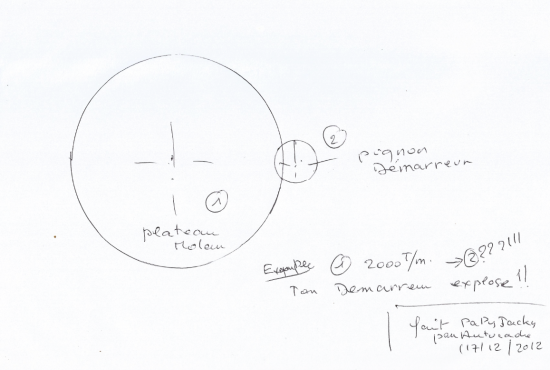 2
pignon
Démarreur
1
plateau
Moteur
Exemple 1 2000 T/m. → 2 ???!!!
Ton Demarreur explose !!
fait PaPyJacky
17/12/2012